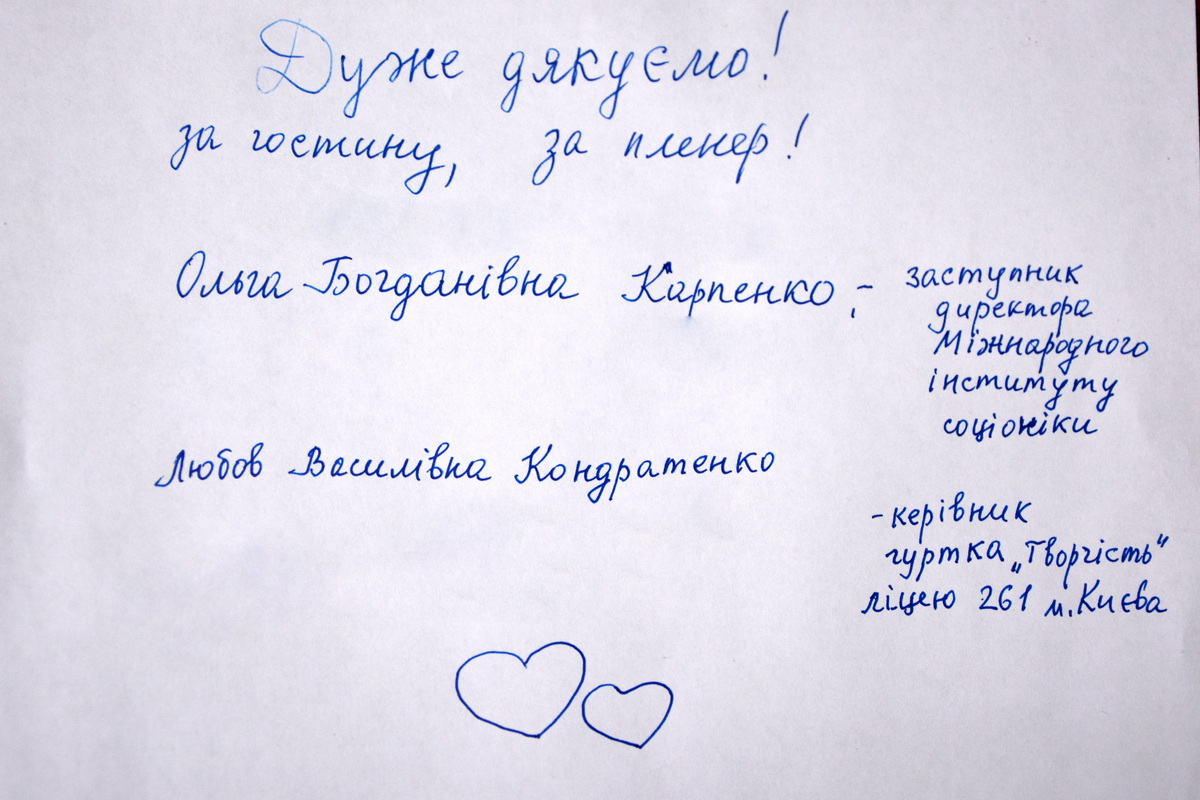 Дуже дякуємо!
за гостину, за пленер!
Ольга Богданівна Карпенко, - заступник
директора
Міжнародного
інституту
соціоніки
Любов Василівна Кондратенко
- керівник
гуртка „Творчість"
ліцею 261 м. Києва